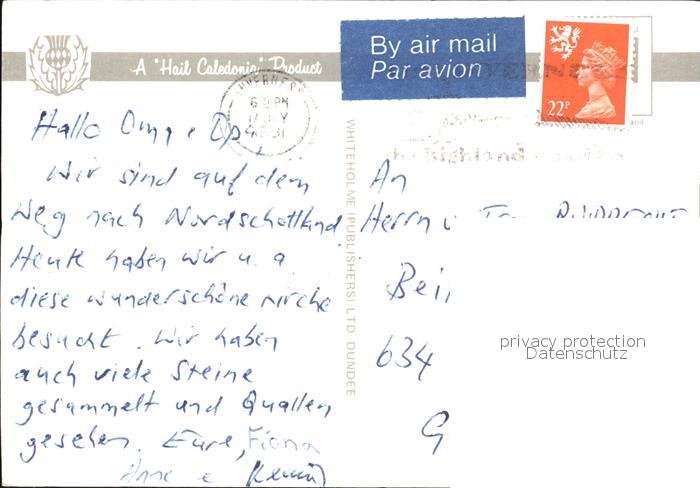 A "Hail Caledonia" Product
By air mail
Par avion
INVERNESS
22P
Hallo Oma + Opa,
wir sind auf dem
Weg nach Nordschottland.
Heute haben wir u. a.
diese wunderschöne Kirche
besucht. Wir haben
auch viele Steine
gesammelt und Quallen
gesehen. Eure, Fiona
Anne +
WHITEHOLME (PUBLISHERS) LTD DUNDEE
An
Herrn
634
G
privacy protection
Datenschutz